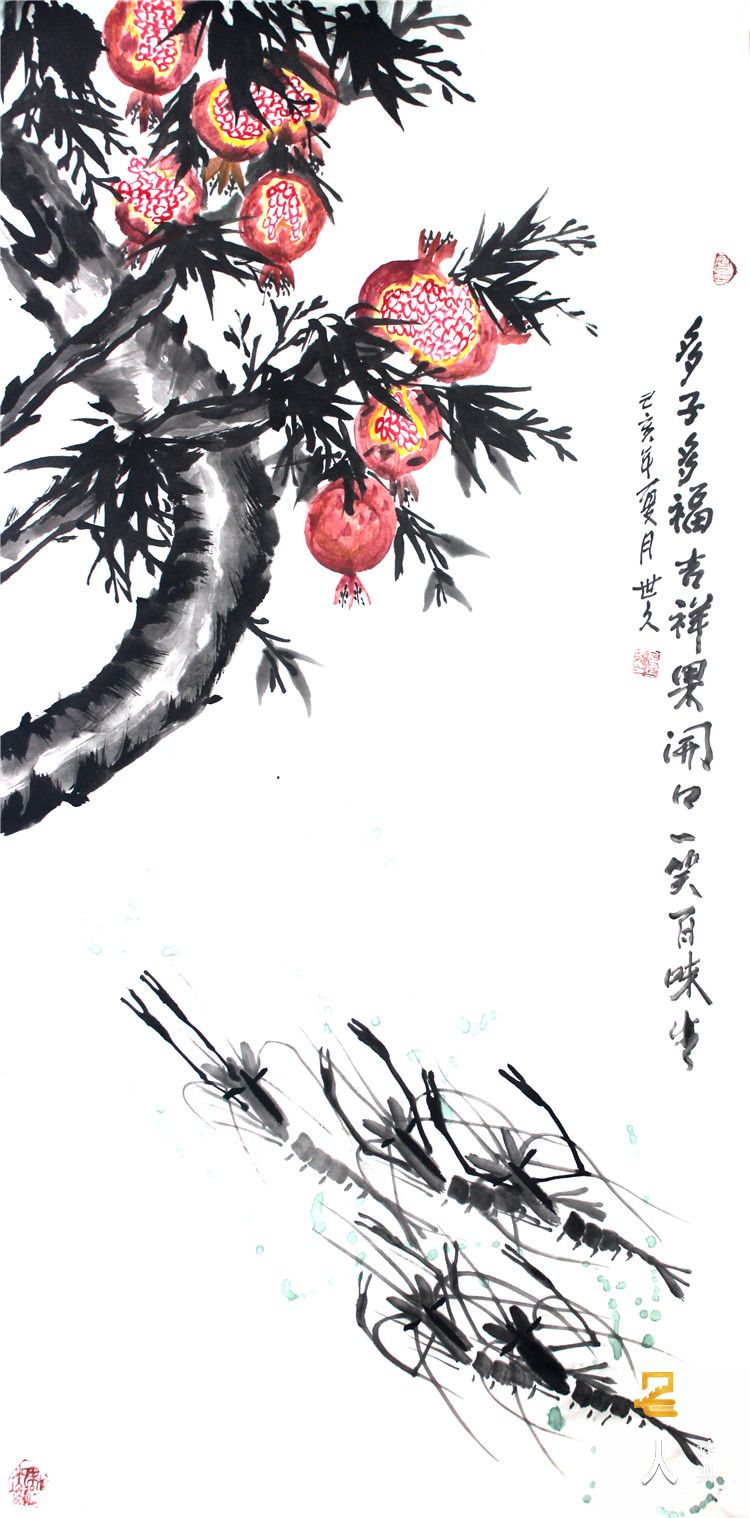 多子多福吉祥果開口一笑百味生
己亥年夏月 世久
人